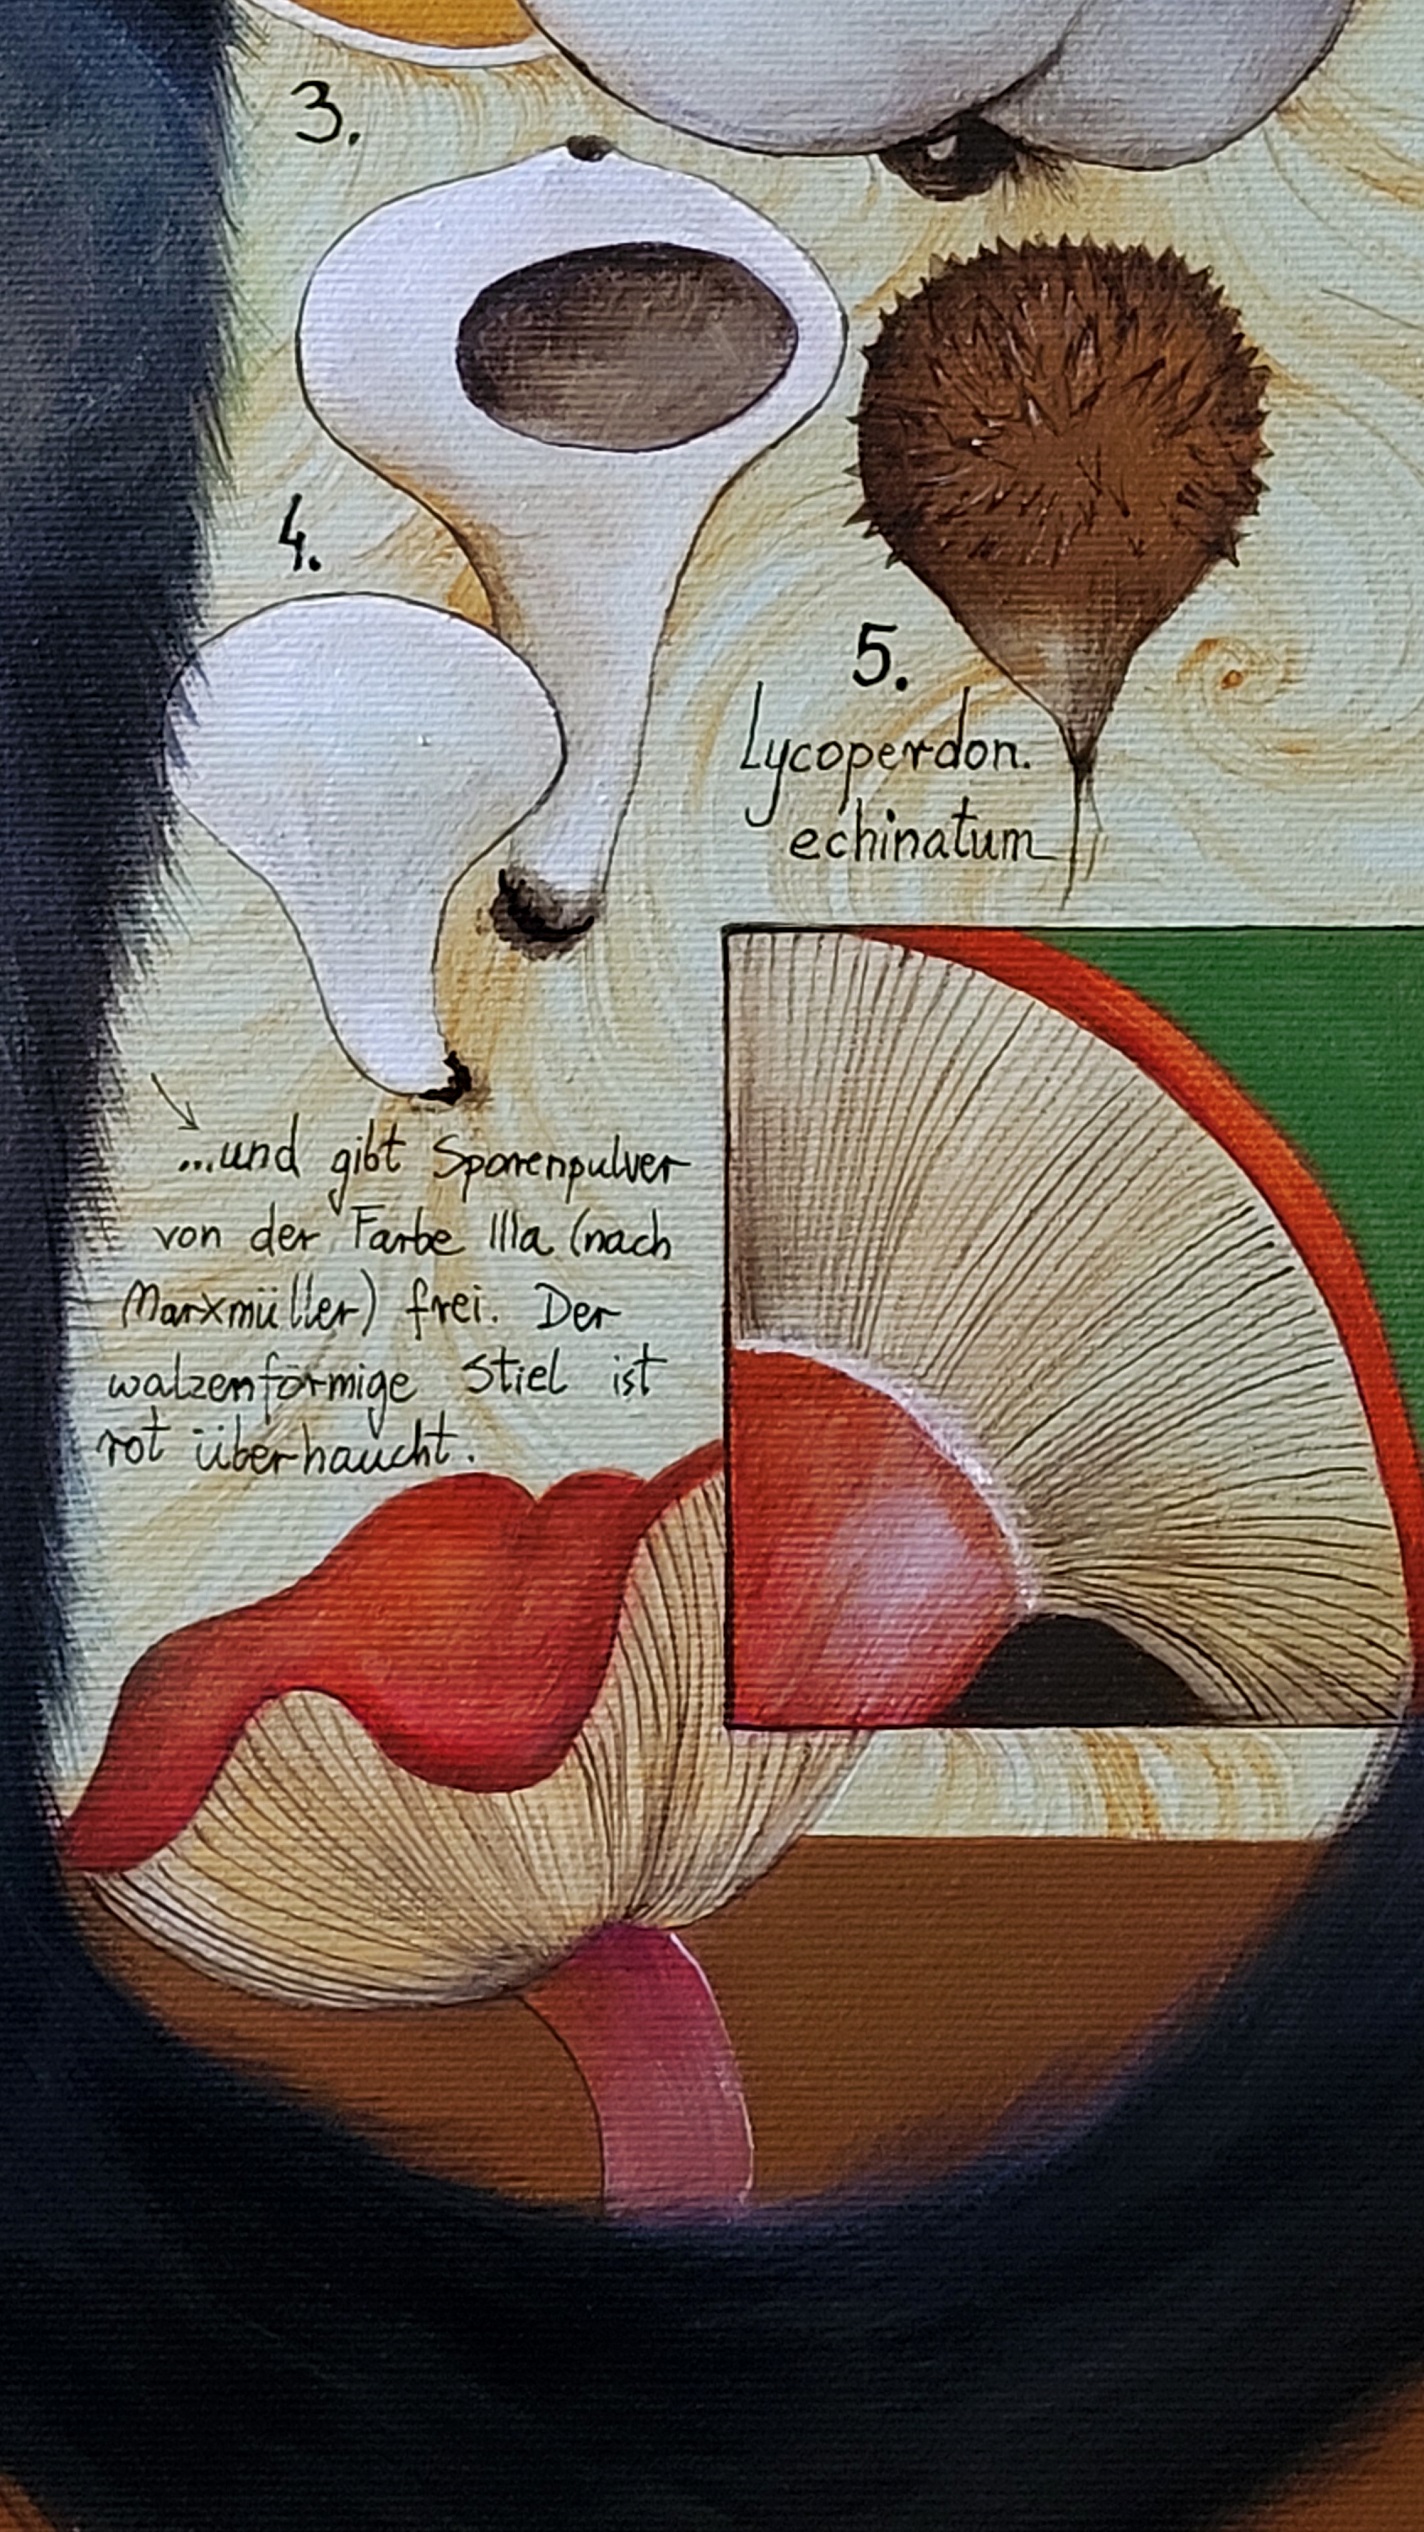 3.
4.
5.
Lycoperdon.
echinatum
...und gibt Sporenpulver
von der Farbe IIIa (nach
Marxmüller) frei. Der
walzenförmige Stiel ist
rot überhaucht.